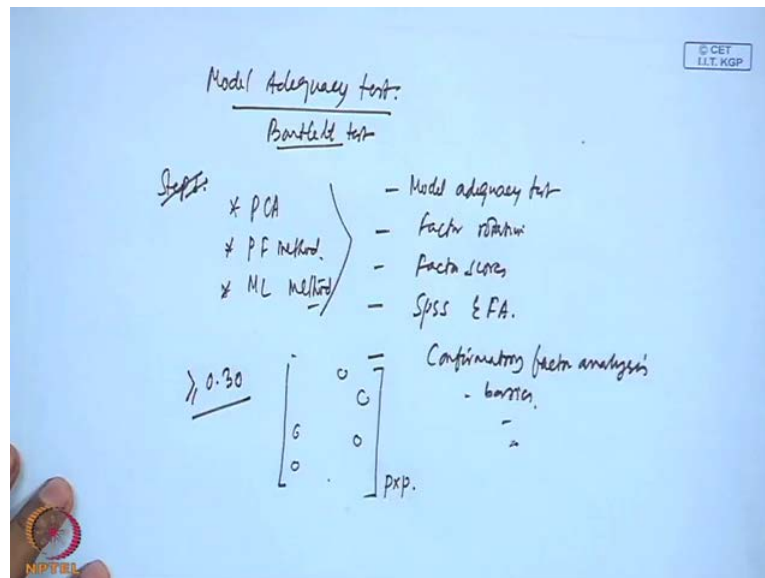 © CET
I.I.T. KGP
Model Adequacy test:
Bartlett test
Steps:
* PCA
* PF method.
* ML method
- Model adequacy test
- Factor rotation
- Factor scores
- SPSS EFA.
- Confirmatory factor analysis
- basics.
-
-
≥ 0.30
0
0
0 0
0
pxp.
NPTEL